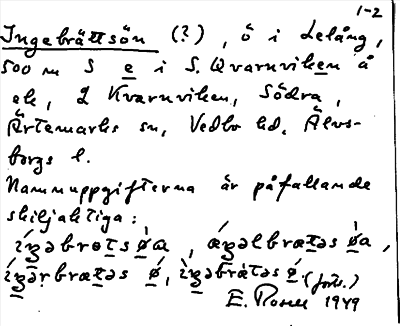 1-2
Ingebrättsön (?), ö i Lelång,
500 m S e i S. Qvarnviken å
ek, L Kvarnviken, Södra,
Ärtemarks sn, Vedbo hd, Älvs-
borgs l.
Namnuppgifterna är påfallande
skiljaktiga:
íŋəbrɵts ø̀a, ǽŋəlbrætəs ø̀a,
íŋərbrætəs ǿ, ìŋəbràtəs ǿ. (forts.)
E. 1949